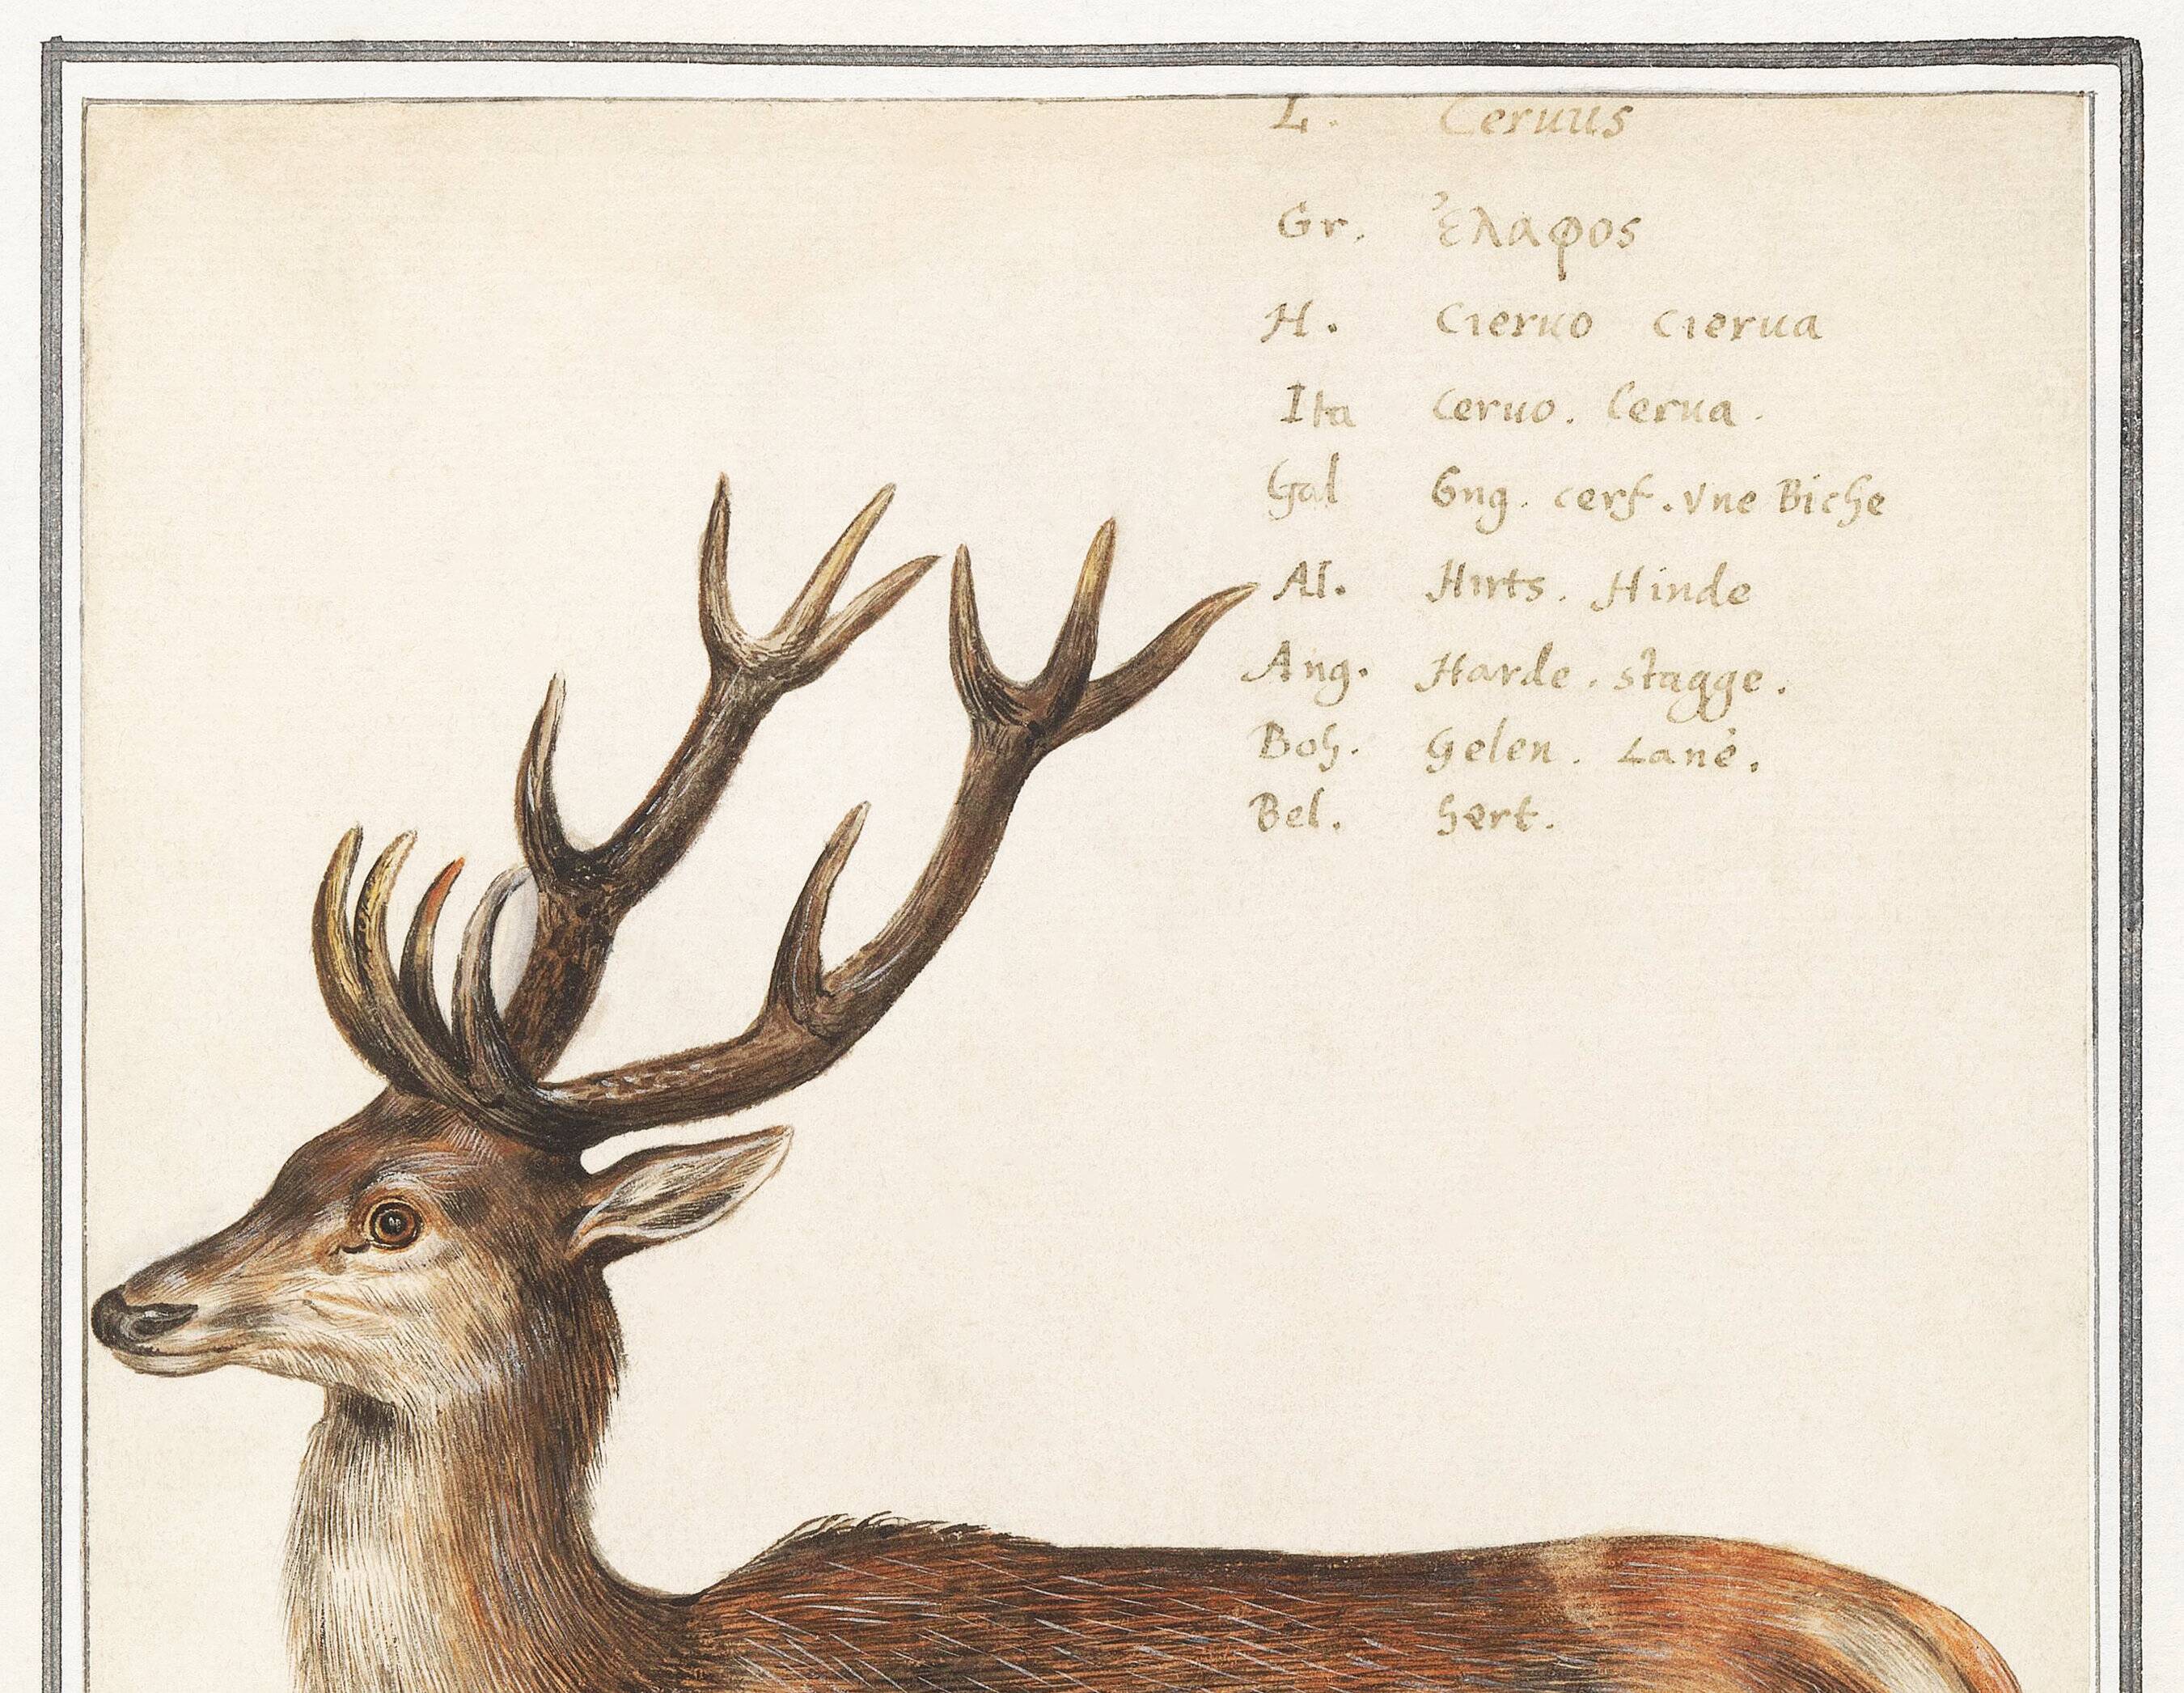 L. Ceruus
Gr. ἐλαφos
H. Cieruo cierua
Ita Ceruo. Cerua.
Gal Ung. cerf. vne Biche
Al. Hirts. Hinde
Ang. Harde. stagge.
Boh. Gelen. Lanè.
Bel. hert.